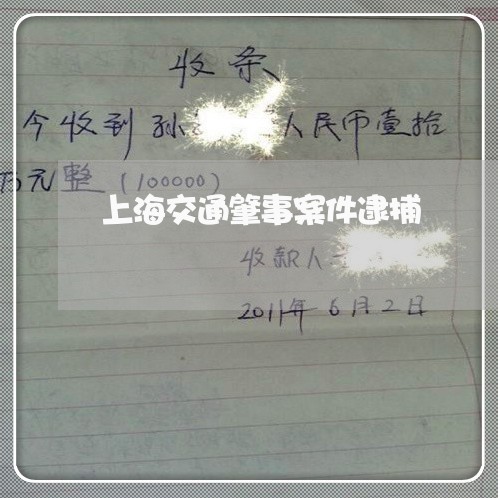 收条
今收到孙 人民币壹拾
万元整(100000)
上海交通肇事案件逮捕
收款人
2011年6月2日